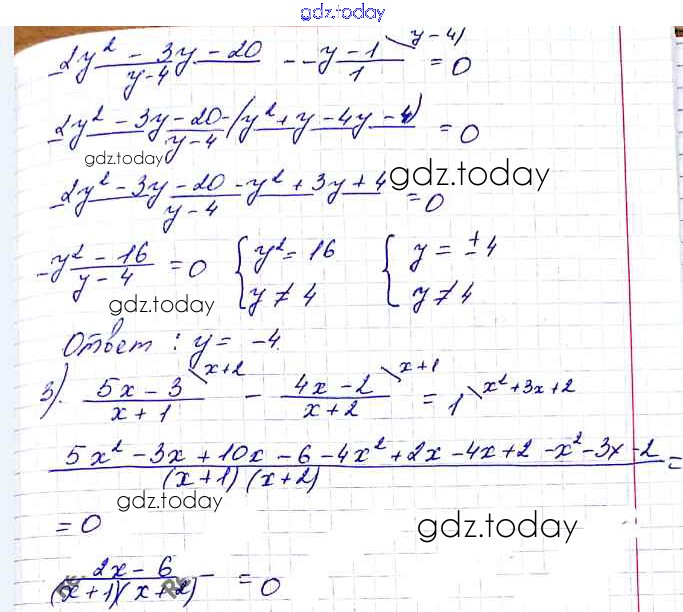 gdz.today
(2y² - 3y - 20)/(y-4) - (y-1)/1 \ y-4) = 0
(2y² - 3y - 20 - (y² + y - 4y - 4))/(y-4) = 0
gdz.today
(2y² - 3y - 20 - y² + 3y + 4)/(y-4) = 0
gdz.today
(y² - 16)/(y-4) = 0 { y² = 16 y ≠ 4 { y = ±4 y ≠ 4
gdz.today
Ответ: y = -4.
3). (5x - 3)/(x + 1) \ x+2 - (4x - 2)/(x + 2) \ x+1 = 1 \ x² + 3x + 2
(5x² - 3x + 10x - 6 - 4x² + 2x - 4x + 2 - x² - 3x - 2)/((x+1)(x+2)) =
gdz.today
= 0
gdz.today
(2x - 6)/((x+1)(x+2)) = 0